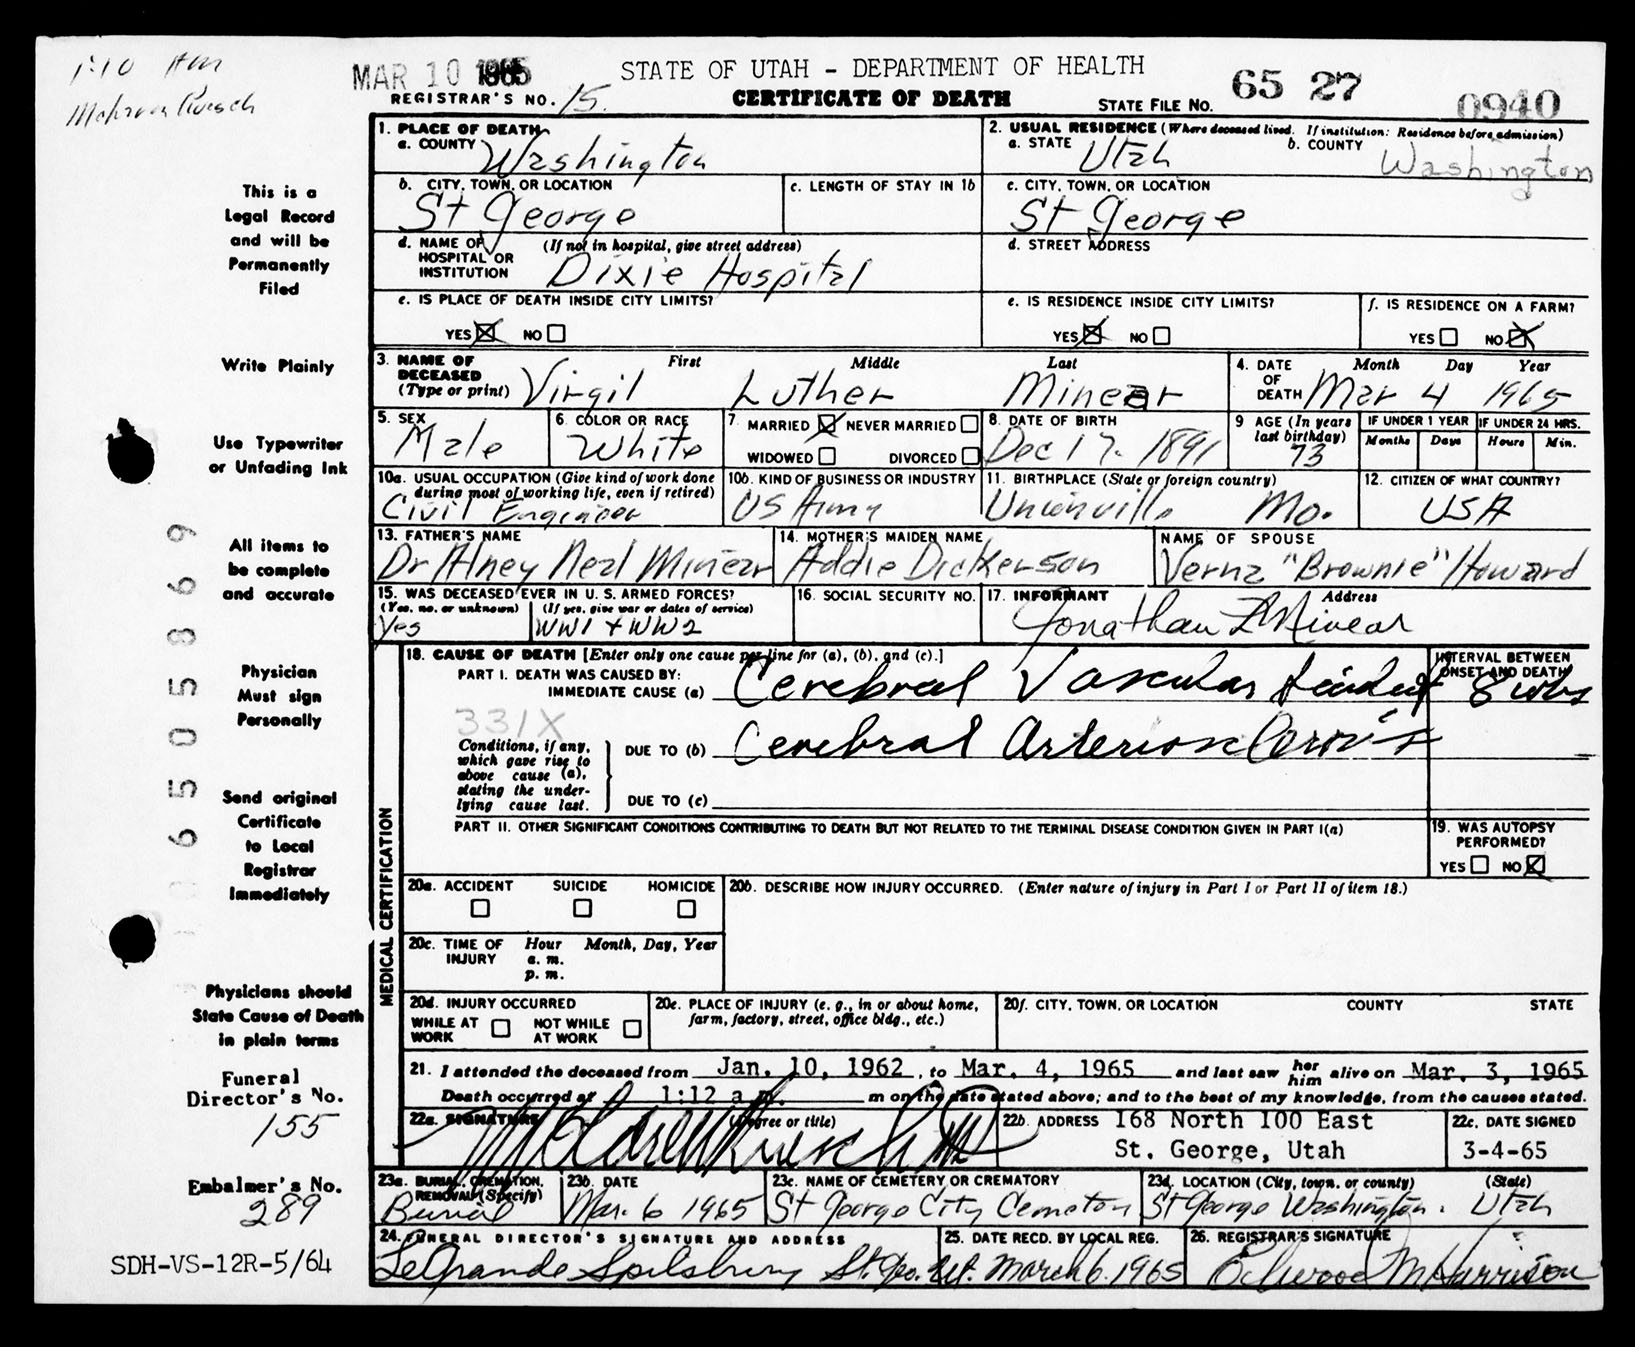 1:10 AM
MAR 10 1965
STATE OF UTAH - DEPARTMENT OF HEALTH
REGISTRAR'S NO. 15.
CERTIFICATE OF DEATH
STATE FILE NO. 65 27 0940
1. PLACE OF DEATH
a. COUNTY Washington
2. USUAL RESIDENCE (Where deceased lived. If institution: Residence before admission)
a. STATE Utah b. COUNTY Washington
b. CITY, TOWN, OR LOCATION St George
c. LENGTH OF STAY IN 1b
c. CITY, TOWN, OR LOCATION St George
d. NAME OF HOSPITAL OR INSTITUTION (If not in hospital, give street address) Dixie Hospital
d. STREET ADDRESS
e. IS PLACE OF DEATH INSIDE CITY LIMITS? YES NO
e. IS RESIDENCE INSIDE CITY LIMITS? YES NO
f. IS RESIDENCE ON A FARM? YES NO
3. NAME OF DECEASED (Type or print) First Middle Last
Virgil Luther Minear
4. DATE OF DEATH Month Day Year
Mar 4 1965
5. SEX Male
6. COLOR OR RACE White
7. MARRIED NEVER MARRIED
WIDOWED DIVORCED
8. DATE OF BIRTH Dec 17. 1891
9 AGE (In years last birthday) 73
IF UNDER 1 YEAR Months Days
IF UNDER 24 HRS. Hours Min.
10a. USUAL OCCUPATION (Give kind of work done during most of working life, even if retired) Civil Engineer
10b. KIND OF BUSINESS OR INDUSTRY US Army
11. BIRTHPLACE (State or foreign country) Unionville Mo.
12. CITIZEN OF WHAT COUNTRY? USA
13. FATHER'S NAME Dr Alney Neal Minear
14. MOTHER'S MAIDEN NAME Addie Dickerson
NAME OF SPOUSE Verna "Brownie" Howard
15. WAS DECEASED EVER IN U. S. ARMED FORCES?
(Yes, no, or unknown) Yes
(If yes, give war or dates of service) WW1 + WW2
16. SOCIAL SECURITY NO.
17. INFORMANT Address
Jonathan L Minear
MEDICAL CERTIFICATION
18. CAUSE OF DEATH [Enter only one cause per line for (a), (b), and (c).]
INTERVAL BETWEEN ONSET AND DEATH
PART I. DEATH WAS CAUSED BY:
IMMEDIATE CAUSE (a) Cerebral Vascular Accident 8 wks
331X
Conditions, if any, which gave rise to above cause (a), stating the underlying cause last.
DUE TO (b) Cerebral Arteriosclerosis
DUE TO (c)
PART II. OTHER SIGNIFICANT CONDITIONS CONTRIBUTING TO DEATH BUT NOT RELATED TO THE TERMINAL DISEASE CONDITION GIVEN IN PART I(a)
19. WAS AUTOPSY PERFORMED?
YES NO
20a. ACCIDENT SUICIDE HOMICIDE
20b. DESCRIBE HOW INJURY OCCURRED. (Enter nature of injury in Part I or Part II of item 18.)
20c. TIME OF INJURY Hour Month, Day, Year
a. m.
p. m.
20d. INJURY OCCURRED
WHILE AT WORK NOT WHILE AT WORK
20e. PLACE OF INJURY (e. g., in or about home, farm, factory, street, office bldg., etc.)
20f. CITY, TOWN, OR LOCATION COUNTY STATE
21. I attended the deceased from Jan. 10, 1962, to Mar. 4, 1965 and last saw her him alive on Mar. 3, 1965
Death occurred at 1:12 a m. m on the date stated above; and to the best of my knowledge, from the causes stated.
22a. SIGNATURE (Degree or title)
22b. ADDRESS 168 North 100 East
St. George, Utah
22c. DATE SIGNED
3-4-65
23a. BURIAL, CREMATION, REMOVAL (Specify) Burial
23b. DATE Mar. 6 1965
23c. NAME OF CEMETERY OR CREMATORY St George City Cemetery
23d. LOCATION (City, town, or county) (State)
St George Washington. Utah
24. FUNERAL DIRECTOR'S SIGNATURE AND ADDRESS
LeGrande Spilsbury St. Geo. Ut.
25. DATE RECD. BY LOCAL REG.
March 6. 1965
26. REGISTRAR'S SIGNATURE
Elwood M Harrison
This is a
Legal Record
and will be
Permanently
Filed
Write Plainly
Use Typewriter
or Unfading Ink
All items to
be complete
and accurate
Physician
Must sign
Personally
Send original
Certificate
to Local
Registrar
Immediately
Physicians should
State Cause of Death
in plain terms
Funeral
Director's No.
155
Embalmer's No.
289
SDH-VS-12R-5/64